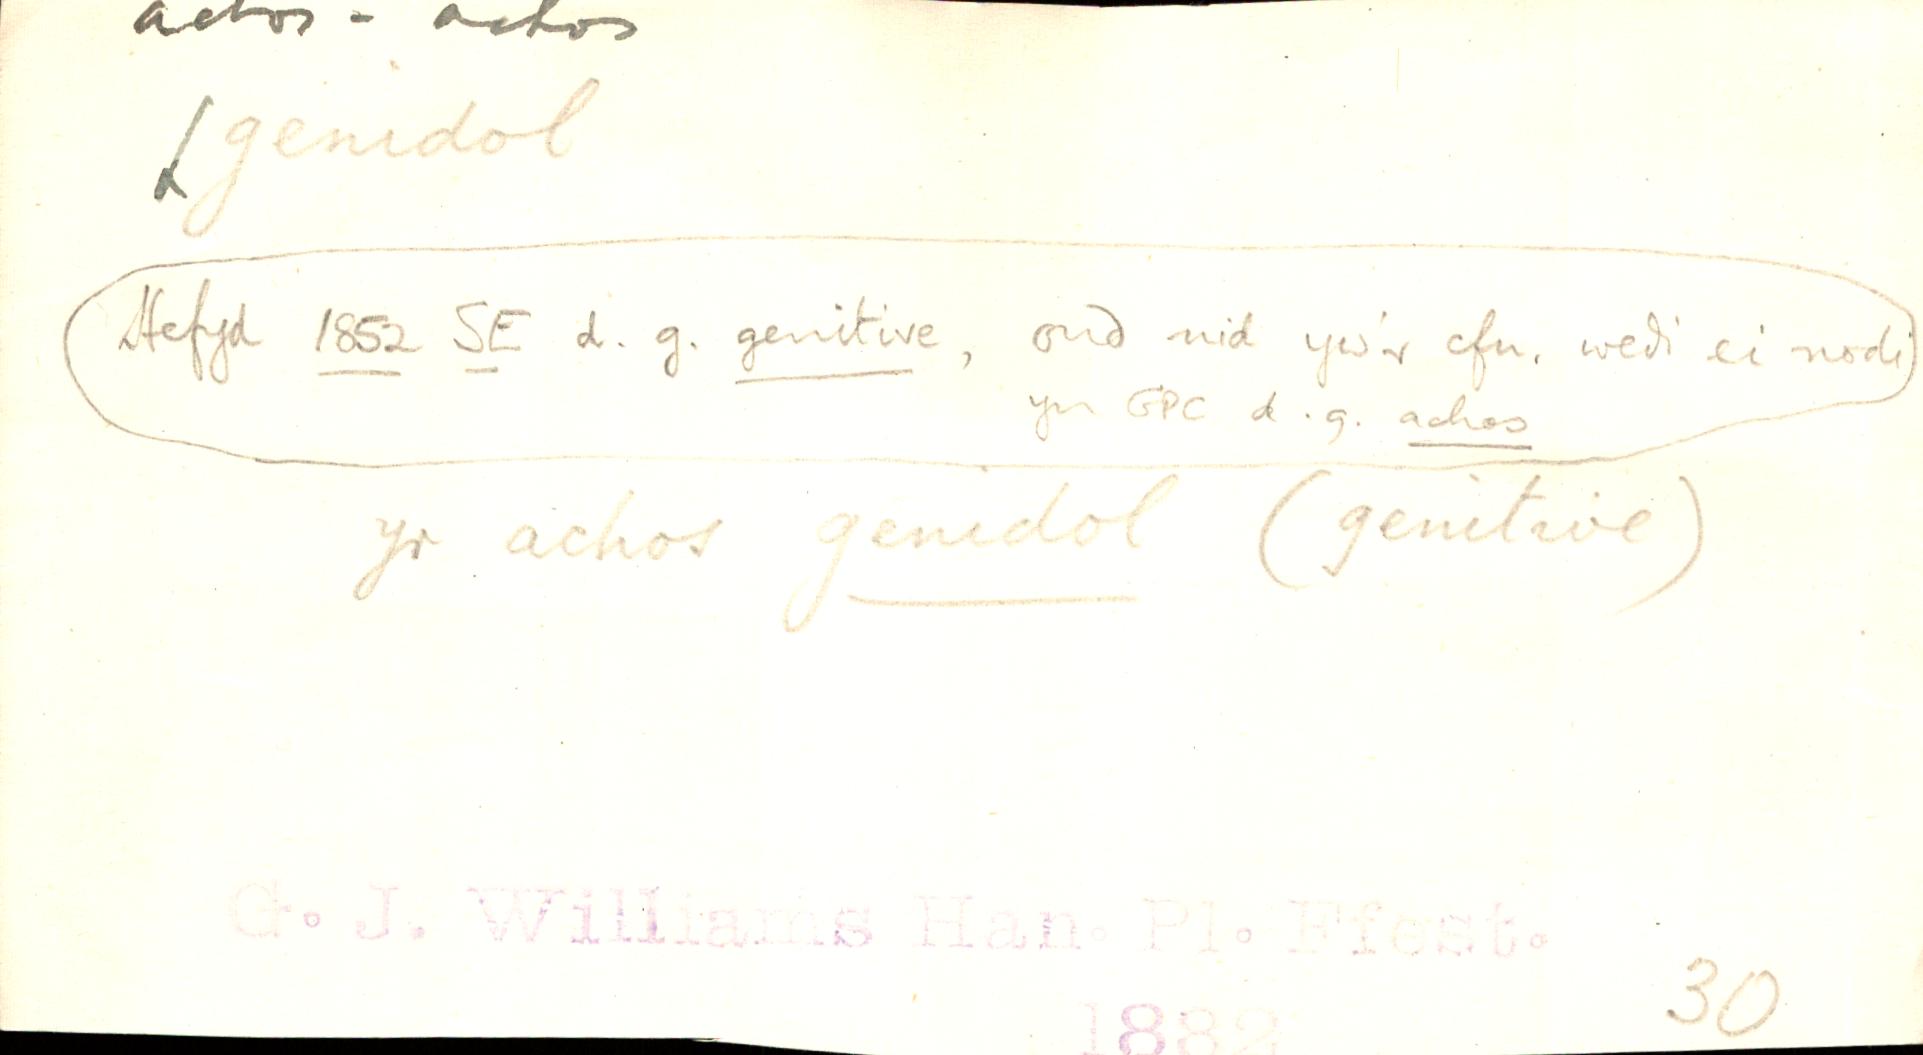 achos - achos
genidol
Hefyd 1852 SE d. g. genitive, ond nid yw'r cfn. wedi ei nodi
yn GPC d.g. achos
yr achos genidol (genitive)
G. J. Williams Han. Pl. Ffest.
1882
30